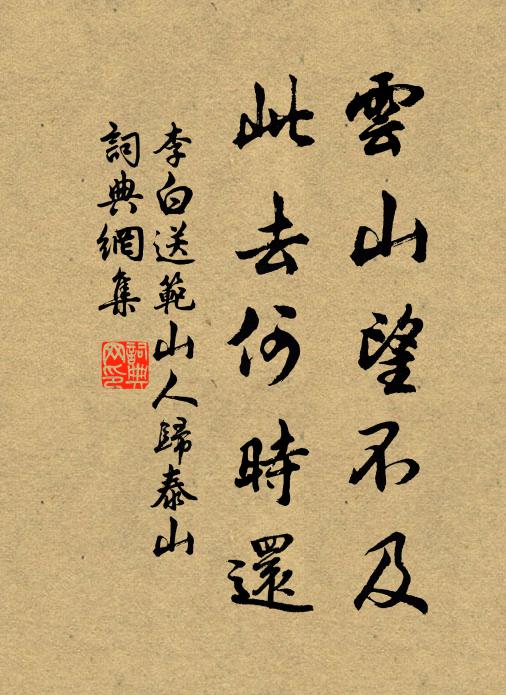 雲山望不及
此去何時還
李白送範山人歸泰山
詞典網集
詞典网印